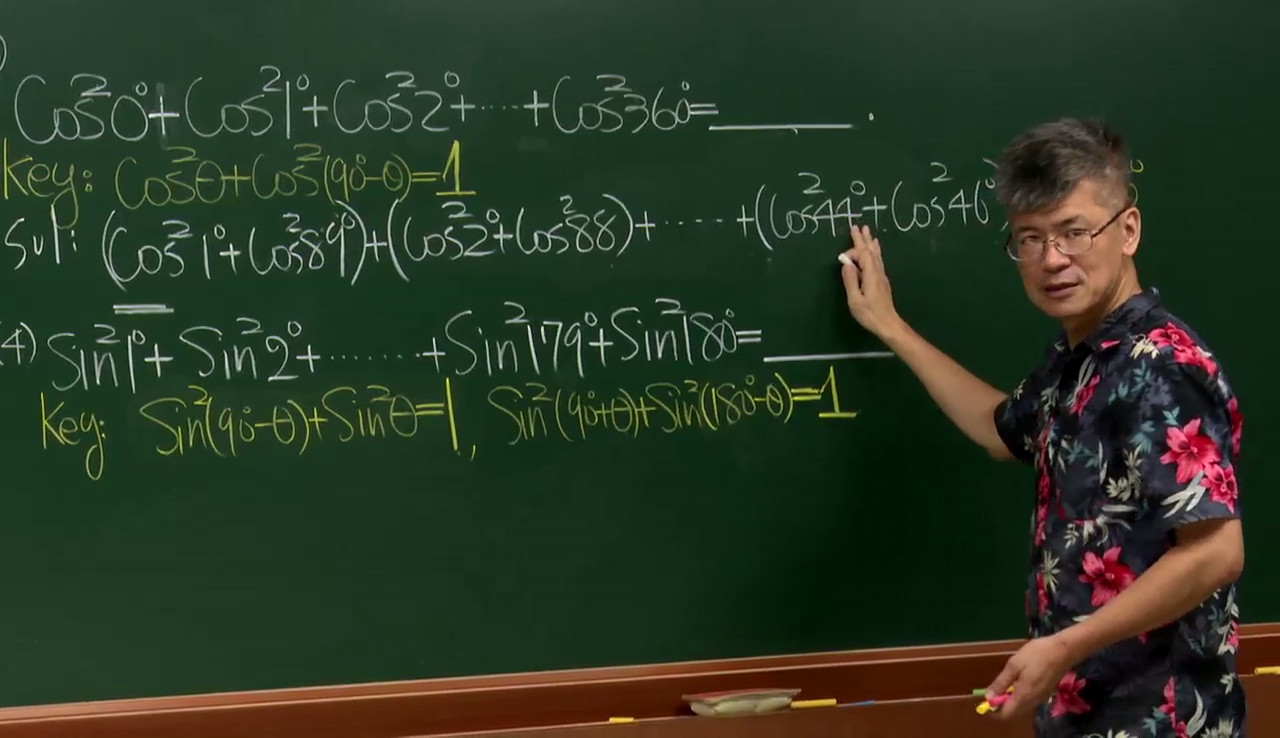 )
Cos²0°+Cos²1°+Cos²2°+······+Cos²360°=______.
Key: Cos²θ+Cos²(90°-θ)=1
Sol: (Cos²1°+Cos²89°)+(Cos²2°+Cos²88)+······+(Cos²44°+Cos²46°)
(4) Sin²1°+Sin²2°+······+Sin²179°+Sin²180°=______
Key: Sin²(90°-θ)+Sin²θ=1, Sin²(90°+θ)+Sin²(180°-θ)=1